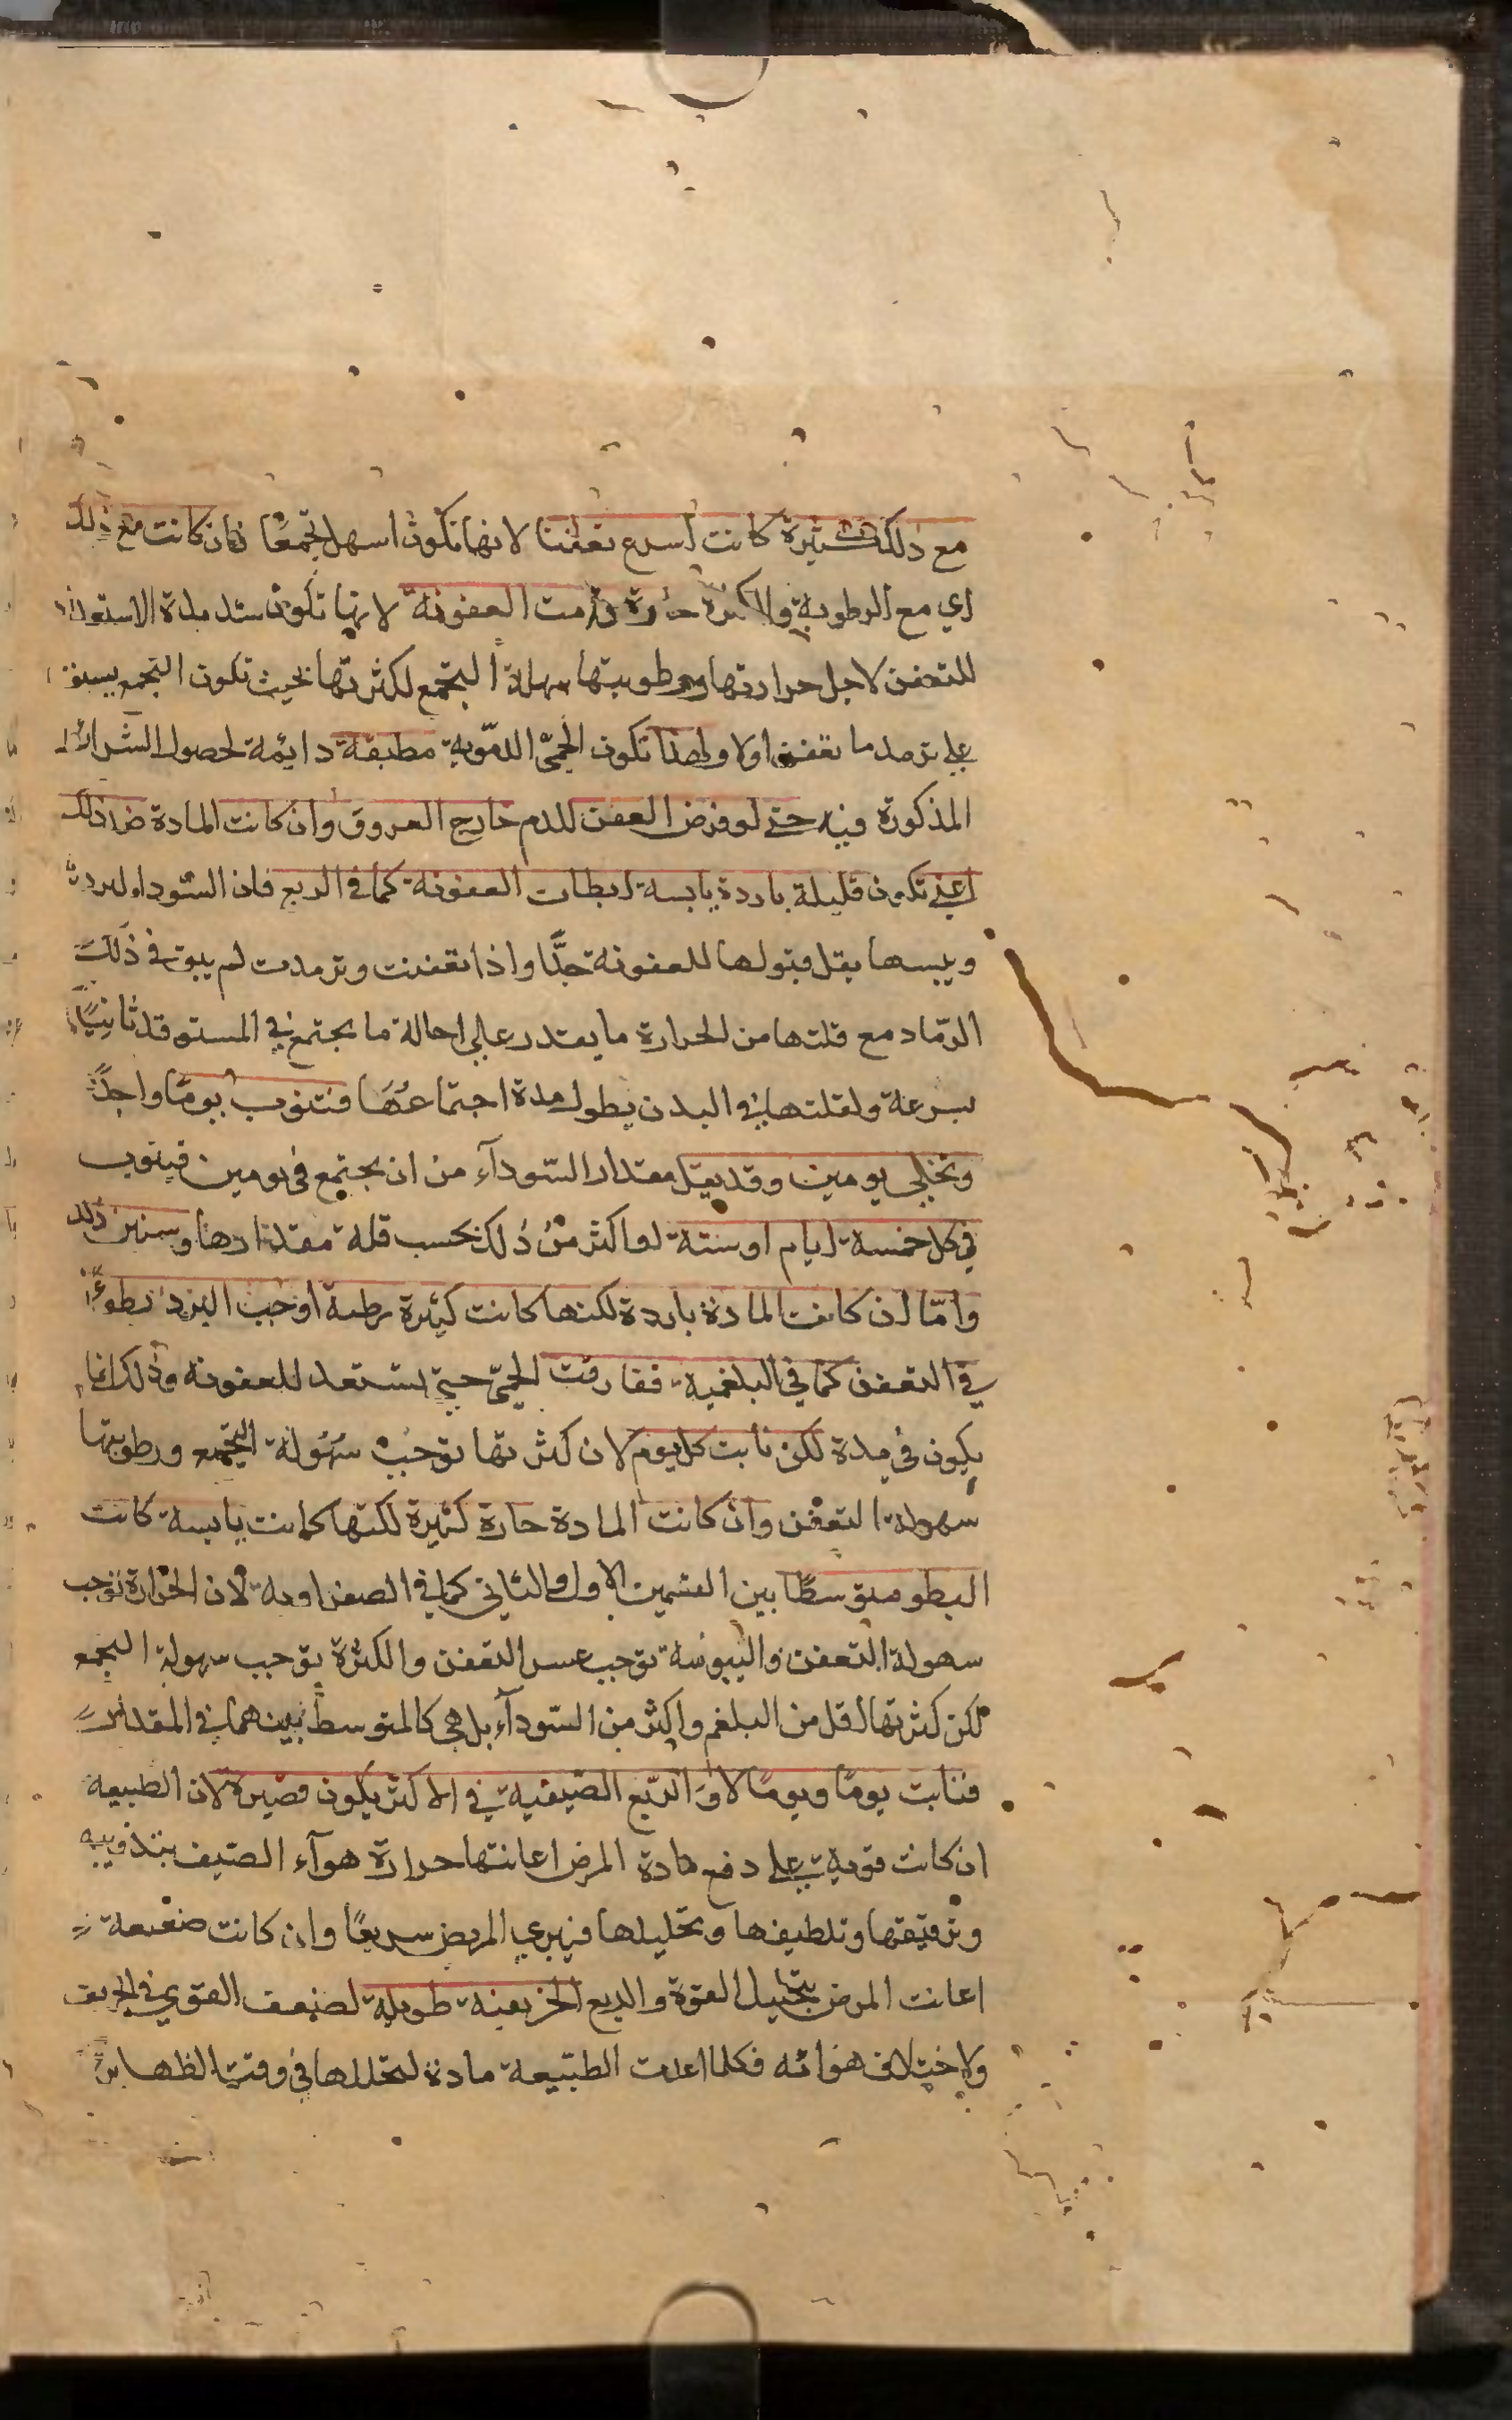 مع ذلك كثيرة كانت اسرع تعفنا لانها تكون اسهل تجمعًا فان كانت مع ذلك
اي مع الرطوبة والكثرة حارة دامت العفونة لانها تكون شديدة الاستعداد
للتعفن لاجل حرارتها ورطوبتها سهلة التجمع لكثرتها بحيث تكون التجمع يسبق
على ترمد ما تعفن اولا ولهذا تكون الحمّى الدمّوية مطبقة دايمة لحصول الشرائط
المذكورة فيه حتى لو فرض العفن للدم خارج العروق وان كانت المادة ضد ذلك
اعني تكون قليلة باردة يابسة ابطات العفونة كما في الربع فان السّودا لبردها
ويبسها يقل قبولها للعفونة جدًّا واذا تعفنت وترمدت لم يبق في ذلك
الرّماد مع قلتها من الحرارة ما يقتدر على احالة ما يجتمع في المستوقد ثانيًا
بسرعة ولقلتها في البدن يطول مدة اجتماعها فتنوب يومًا واحدًا
وتخلي يومين وقد يقل مقدار السّودآء من ان يجتمع في يومين فينوب
في كل خمسة ايام او ستة او اكثر من ذلك بحسب قلة مقدارها وسنبين ذلك
وامّا ان كانت المادة باردة لكنها كانت كثيرة رطبة اوجب البرد بطوءًا
في التعفن كما في البلغمية ففارقت الحمّى حتى تستعد للعفونة وذلك انما
يكون في مدة لكن نابت كل يوم لان كثرتها توجب سهولة التجمع ورطوبتها
سهولة التعفن وان كانت المادة حارة كثيرة لكنها كانت يابسة كانت
البطو متوسطًا بين القسمين الاول والثاني كما في الصفراوية لان الحرارة توجب
سهولة التعفن واليبوسة توجب عسر التعفن والكثرة توجب سهولة التجمع
لكن كثرتها اقل من البلغم واكثر من السّودآء بل هي كالمتوسط بينهما في المقدار
فنابت يومًا ويومًا لا والرّبع الصّيفية في الاكثر يكون قصيرة لان الطبيعة
ان كانت قوية على دفع مادة المرض اعانتها حرارة هوآء الصّيف بتذويبه
وترقيقها وتلطيفها وتحليلها فيبرئ المريض سريعًا وان كانت ضعيفة
اعانت المرض بتحليل القوة والربع الخريفية طويلة لضعف القوى في الخريف
ولاختلاف هوائه فكلما اعدت الطبيعة مادة لتحللها في وقت الظهاير